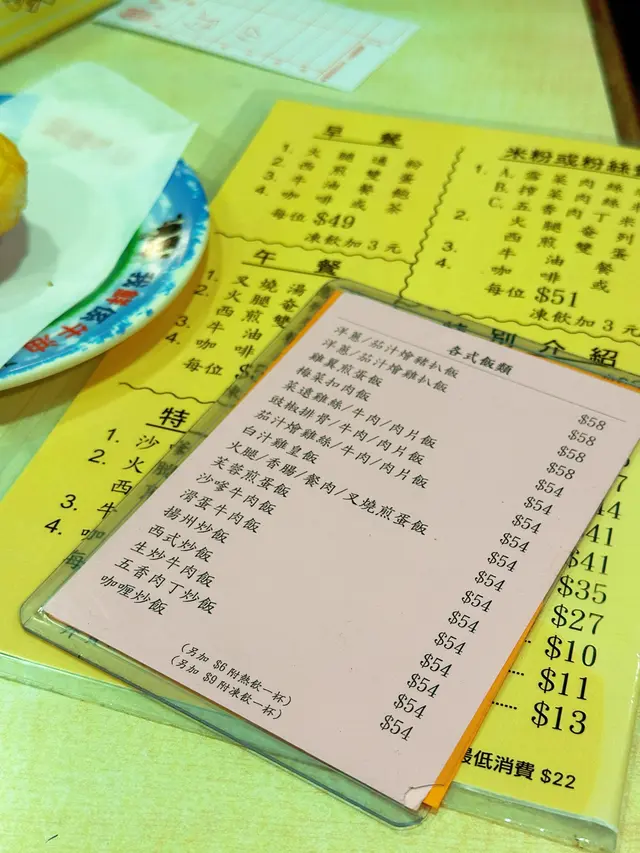 早餐
1. 火腿通粉
2. 西煎雙蛋
3. 牛油餐飽
4. 咖啡或茶
每位 $49
凍飲加3元
米粉或粉絲
1. A. 雪菜肉絲
B. 榨菜肉絲
C. 五香肉丁米
2. 火腿奄列
西煎雙蛋
3. 牛油餐
4. 咖啡或
每位 $51
凍飲加3元
午餐
1. 叉燒湯
2. 火腿奄
西煎雙
3. 牛油
4. 咖啡
每位
特別介紹
特
1. 沙嗲
2. 火
西
3. 牛
4. 咖
每
各式飯類
洋蔥/茄汁燴豬扒飯 $58
洋蔥/茄汁燴雞扒飯 $58
雞翼煎蛋飯 $58
梅菜扣肉飯 $58
菜遠雞絲/牛肉/肉片飯 $54
豉椒排骨/牛肉/肉片飯 $54
茄汁燴雞絲/牛肉/肉片飯 $54
白汁雞皇飯 $54
火腿/香腸/餐肉/叉燒煎蛋飯 $54
芙蓉煎蛋飯 $54
沙嗲牛肉飯 $54
滑蛋牛肉飯 $54
揚州炒飯 $54
西式炒飯 $54
生炒牛肉飯 $54
五香肉丁炒飯
咖喱炒飯
(另加 $6 附熱飲一杯)
(另加 $9 附凍飲一杯)
$41
$35
$27
$10
$11
$13
最低消費 $22
牛油